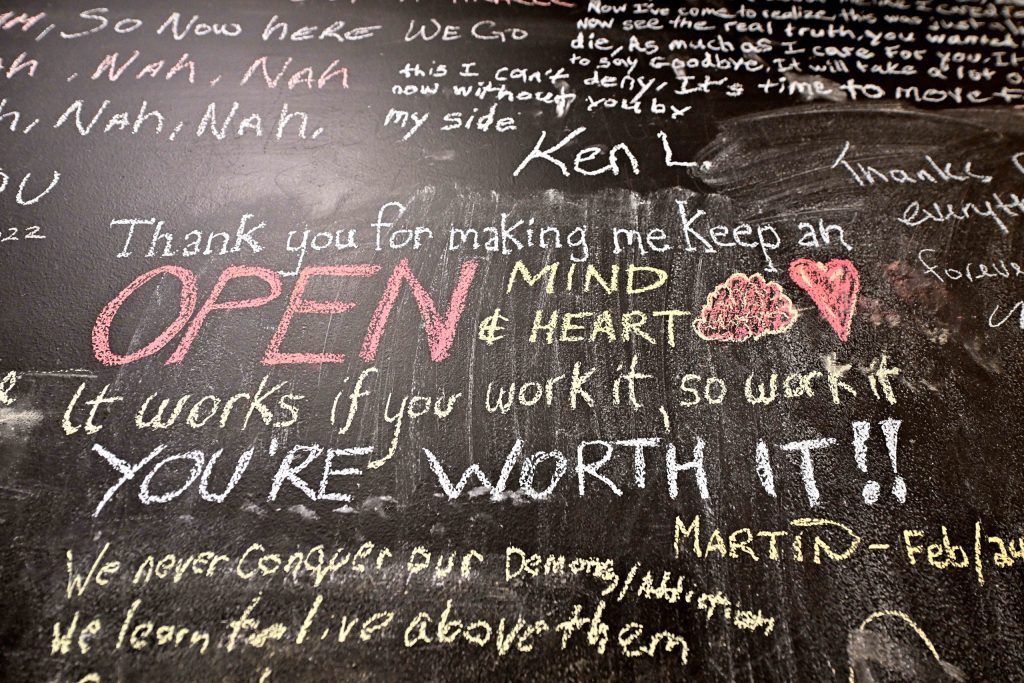 AH, SO NOW HERE WE GO
NAH, NAH
NAH, NAH,
OU
Now I've come to realize, this was just
now see the real truth, you wanted
die, As much as I care for you, It
to say Goodbye, It will take a lot o
this I can't deny, It's time to move f
now without you by
my side
Ken L.
Thanks
everyth
foreve
Thank you for making me keep an
OPEN MIND
& HEART
It works if you work it, so work it
YOU'RE WORTH IT!!
MARTIN - Feb/
We never Conquer our Demons/Addictions
We learn to live above them